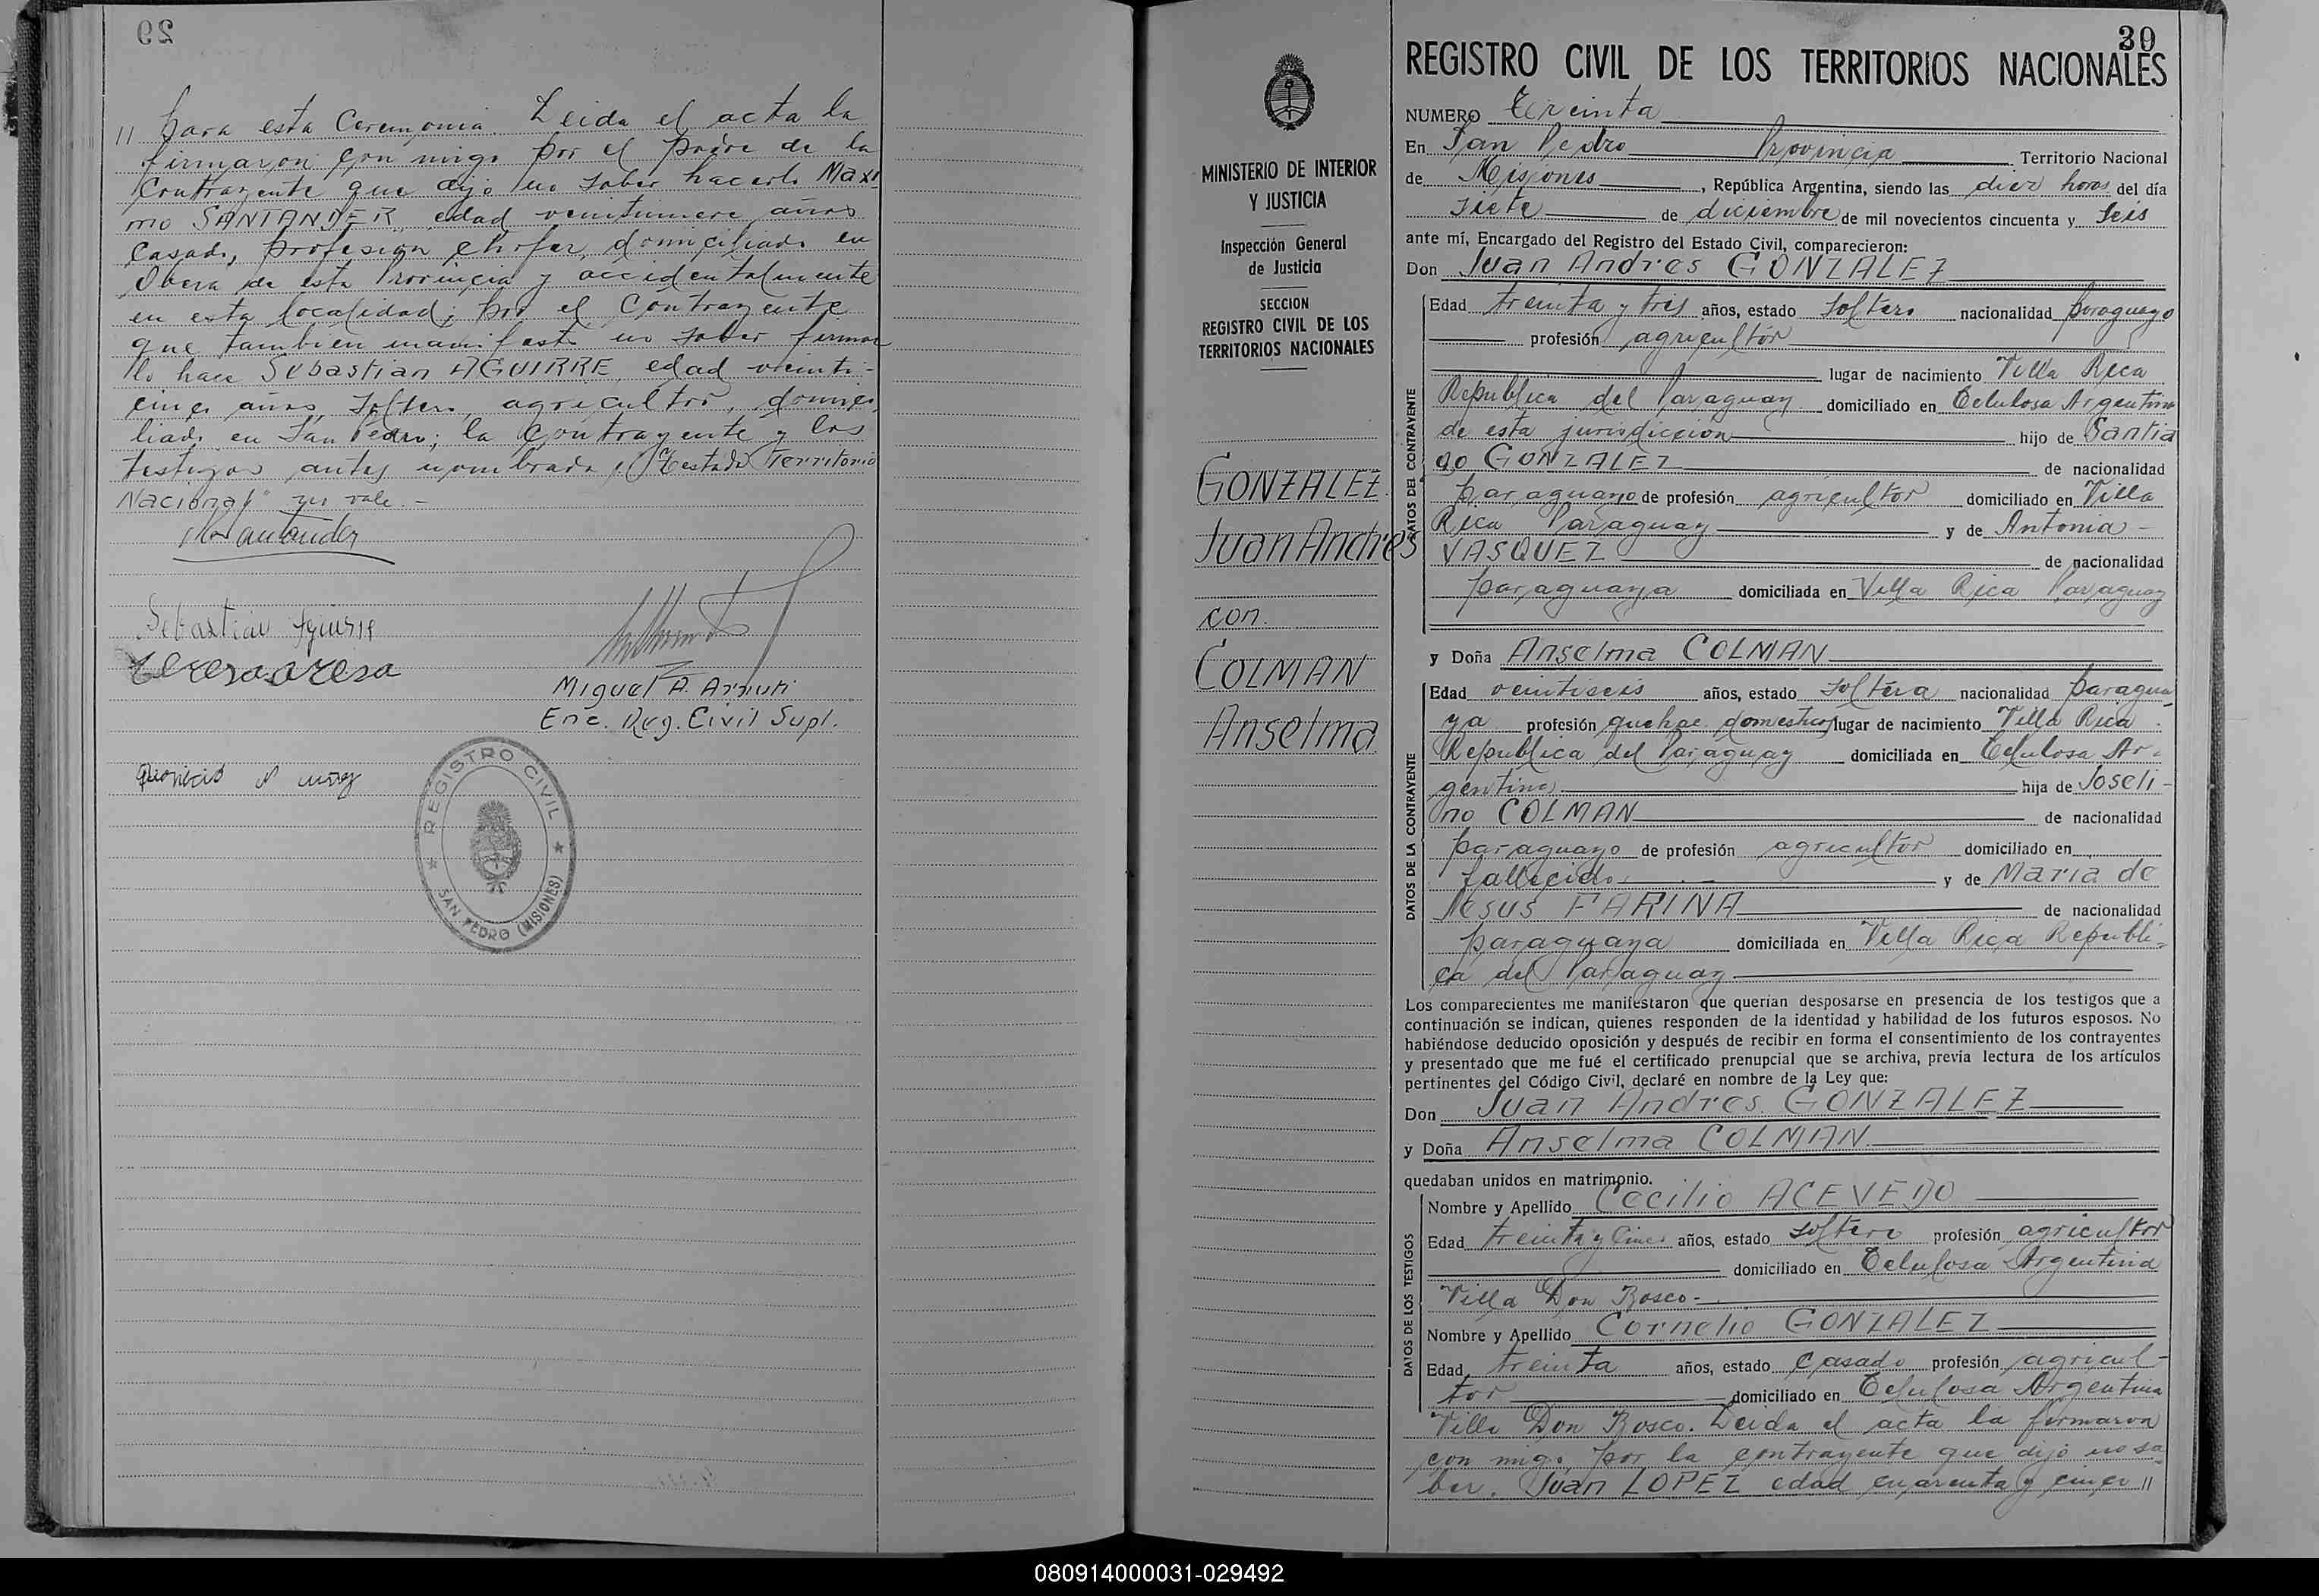 29
// para esta Ceremonia. Leida el acta la
firmaron con migo por el padre de la
Contrayente que dijo no saber hacerlo Maxi
mo SANTANDER, edad veintinueve años
Casado, profesion chofer, domiciliado en
Obera de esta Provincia y accidentalmente
en esta localidad; por el Contrayente
que tambien manifestó no saber firmar
lo hace Sebastian AGUIRRE, edad veinti-
cinco años, soltero, agricultor, domici
liado en San Pedro; la Contrayente y los
testigos antes nombrados. Testado "Territorio
Nacional" no vale.-
Santander
Sebastian Aguirre
Miguel A. Arruti
Enc. Reg. Civil Supl.
REGISTRO CIVIL
SAN PEDRO (MISIONES)
MINISTERIO DE INTERIOR
Y JUSTICIA
Inspección General
de Justicia
SECCION
REGISTRO CIVIL DE LOS
TERRITORIOS NACIONALES
GONZALEZ
Juan Andres
con
COLMAN
Anselma
30
REGISTRO CIVIL DE LOS TERRITORIOS NACIONALES
NUMERO Treinta
En San Pedro Provincia Territorio Nacional
de Misiones, República Argentina, siendo las diez horas del día
siete de diciembre de mil novecientos cincuenta y seis
ante mí, Encargado del Registro del Estado Civil, comparecieron:
Don Juan Andres GONZALEZ
DATOS DEL CONTRAYENTE
Edad treinta y tres años, estado soltero nacionalidad paraguayo
profesión agricultor
lugar de nacimiento Villa Rica
Republica del Paraguay domiciliado en Celulosa Argentina
de esta jurisdiccion hijo de Santia
go GONZALEZ de nacionalidad
paraguayo de profesión agricultor domiciliado en Villa
Rica Paraguay y de Antonia -
VASQUEZ de nacionalidad
paraguaya domiciliada en Villa Rica Paraguay
y Doña Anselma COLMAN
DATOS DE LA CONTRAYENTE
Edad veintiseis años, estado soltera nacionalidad paragua
ya profesión quehac. domesticos lugar de nacimiento Villa Rica
Republica del Paraguay domiciliada en Celulosa Ar-
gentina hija de Joseli-
no COLMAN de nacionalidad
paraguayo de profesión agricultor domiciliado en
fallecido y de Maria de
Jesus FARINA de nacionalidad
paraguaya domiciliada en Villa Rica Republi-
ca del Paraguay
Los comparecientes me manifestaron que querían desposarse en presencia de los testigos que a
continuación se indican, quienes responden de la identidad y habilidad de los futuros esposos. No
habiéndose deducido oposición y después de recibir en forma el consentimiento de los contrayentes
y presentado que me fué el certificado prenupcial que se archiva, previa lectura de los artículos
pertinentes del Código Civil, declaré en nombre de la Ley que:
Don Juan Andres GONZALEZ
y Doña Anselma COLMAN
quedaban unidos en matrimonio.
DATOS DE LOS TESTIGOS
Nombre y Apellido Cecilio ACEVEDO
Edad treinta y cinco años, estado soltero profesión agricultor
domiciliado en Celulosa Argentina
Villa Don Bosco.-
Nombre y Apellido Cornelio GONZALEZ
Edad treinta años, estado casado profesión agricul-
tor domiciliado en Celulosa Argentina
Villa Don Bosco. Leida el acta la firmaron
con migo, por la contrayente que dijo no sa-
ber, Juan LOPEZ edad cuarenta y cinco //
080914000031-029492